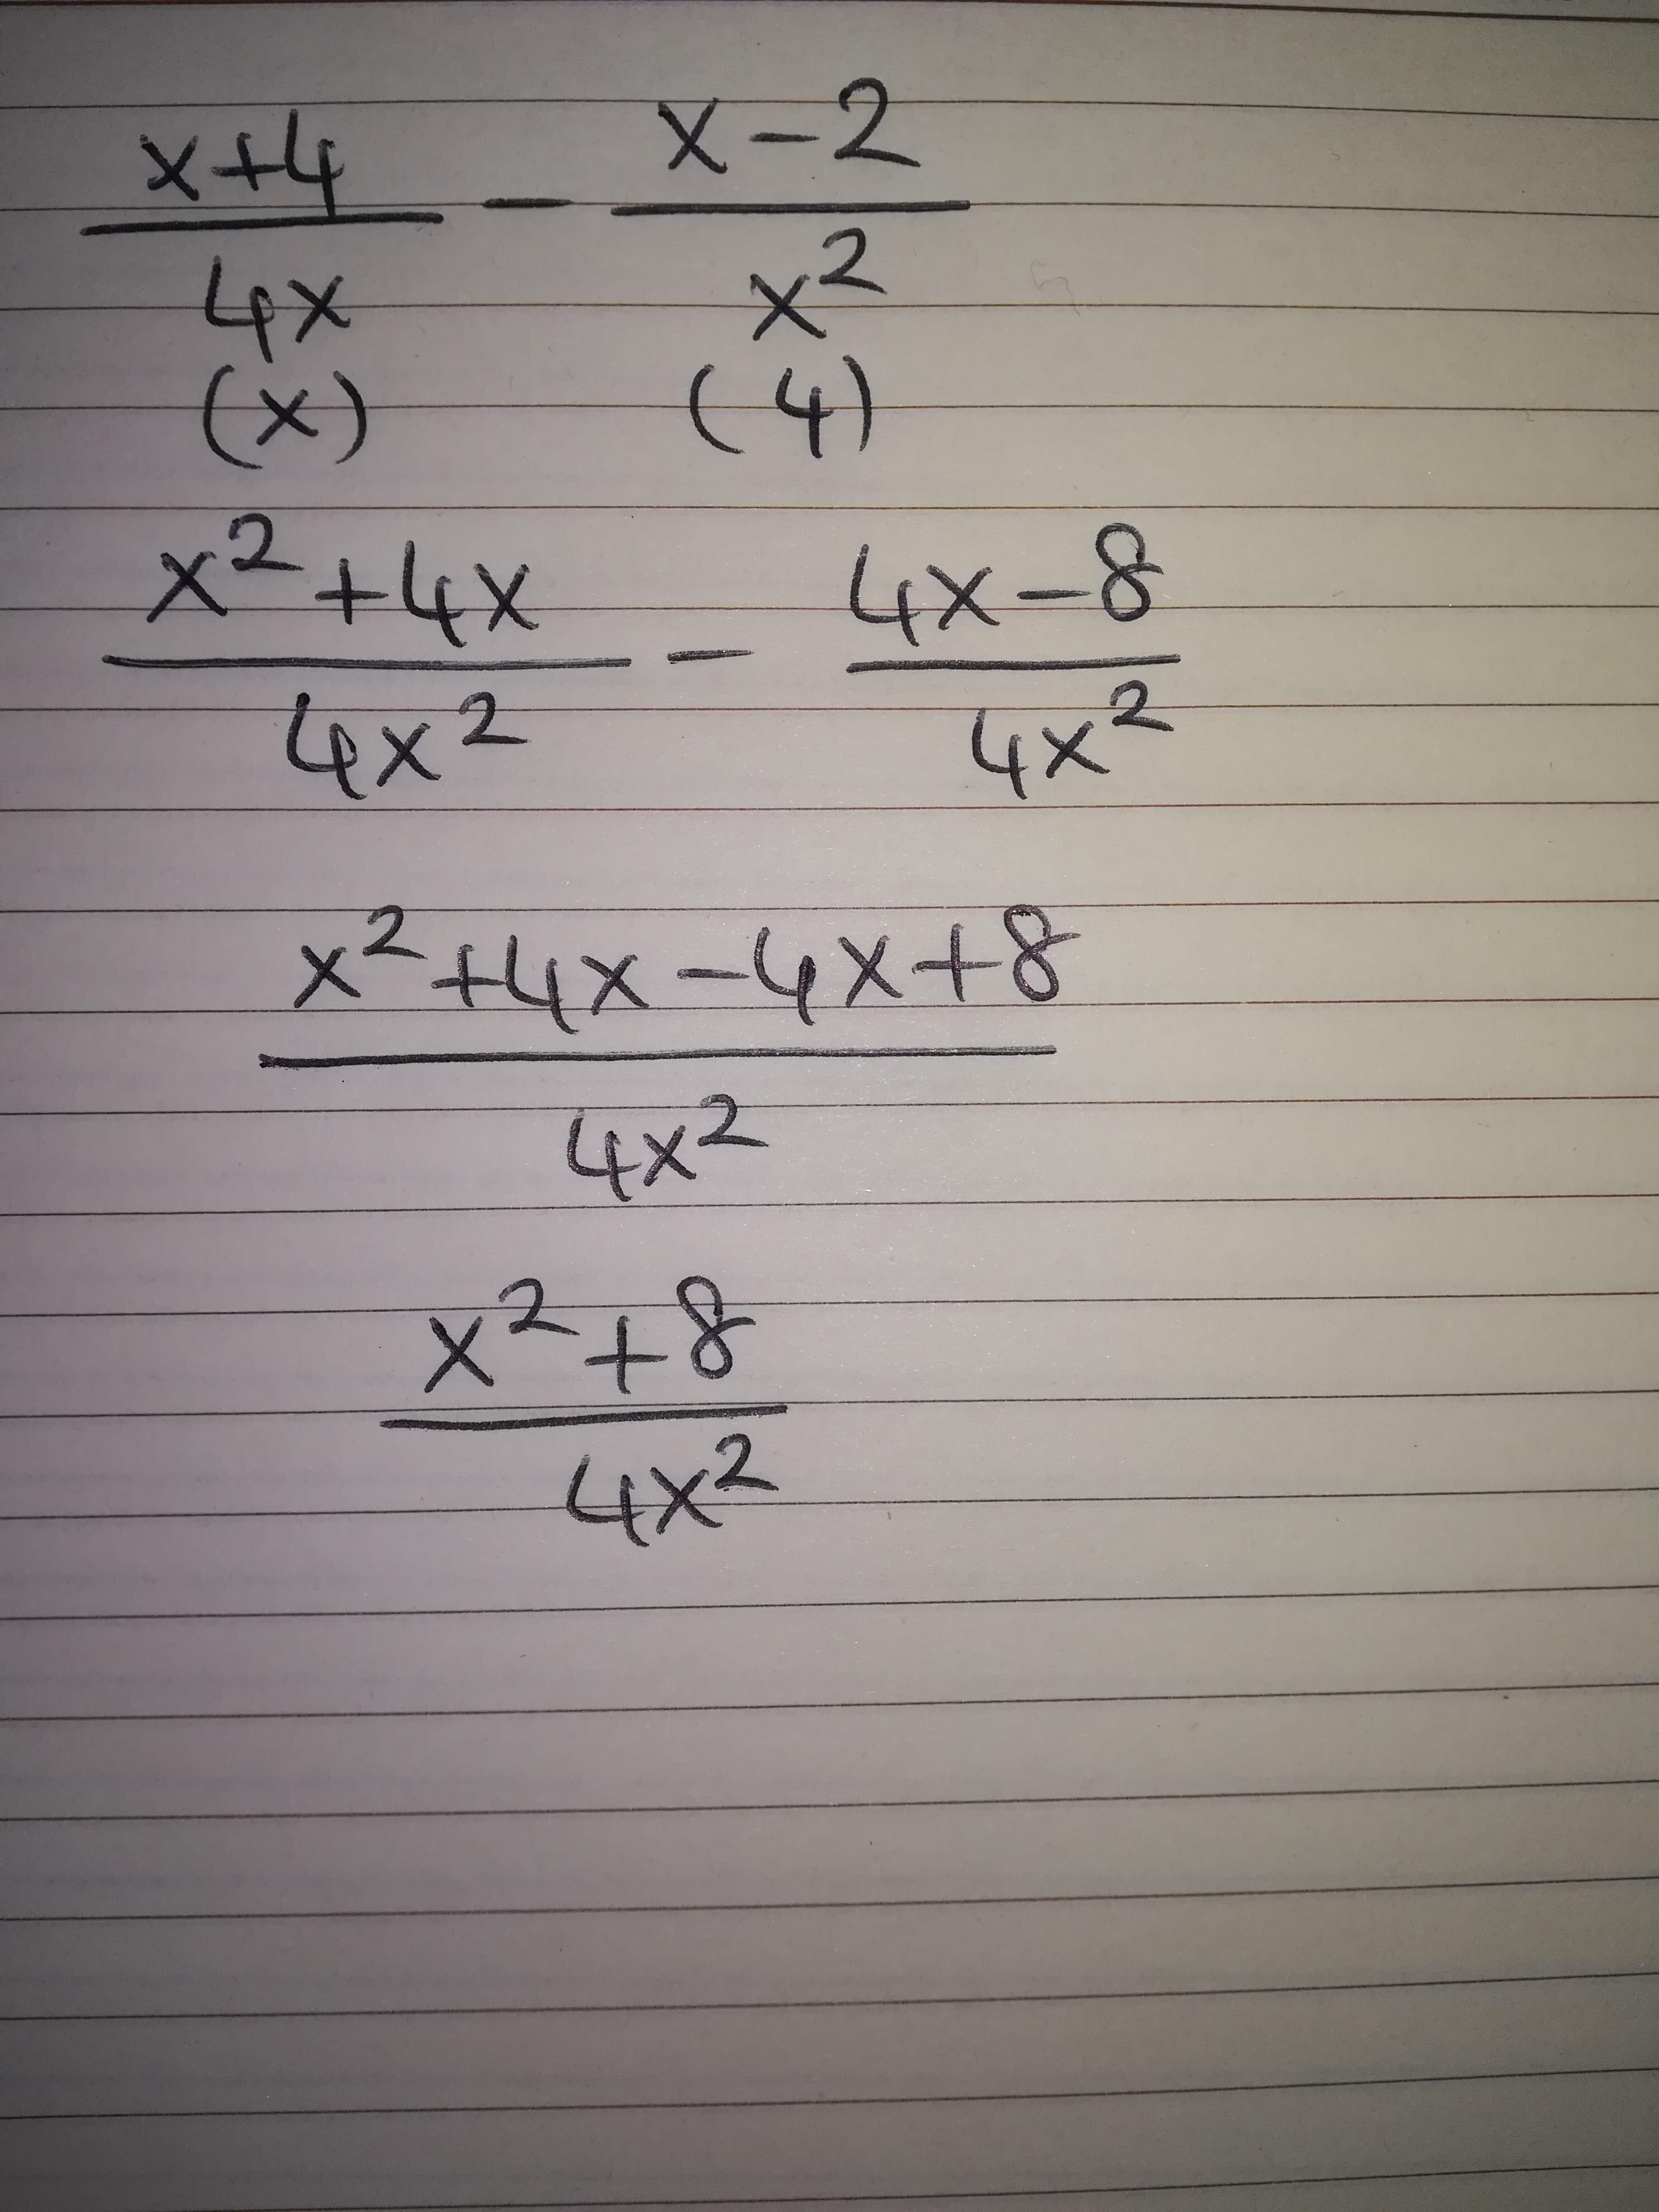 x+4 / 4x - x-2 / x²
(x) (4)
x²+4x / 4x² - 4x-8 / 4x²
x²+4x-4x+8 / 4x²
x²+8 / 4x²